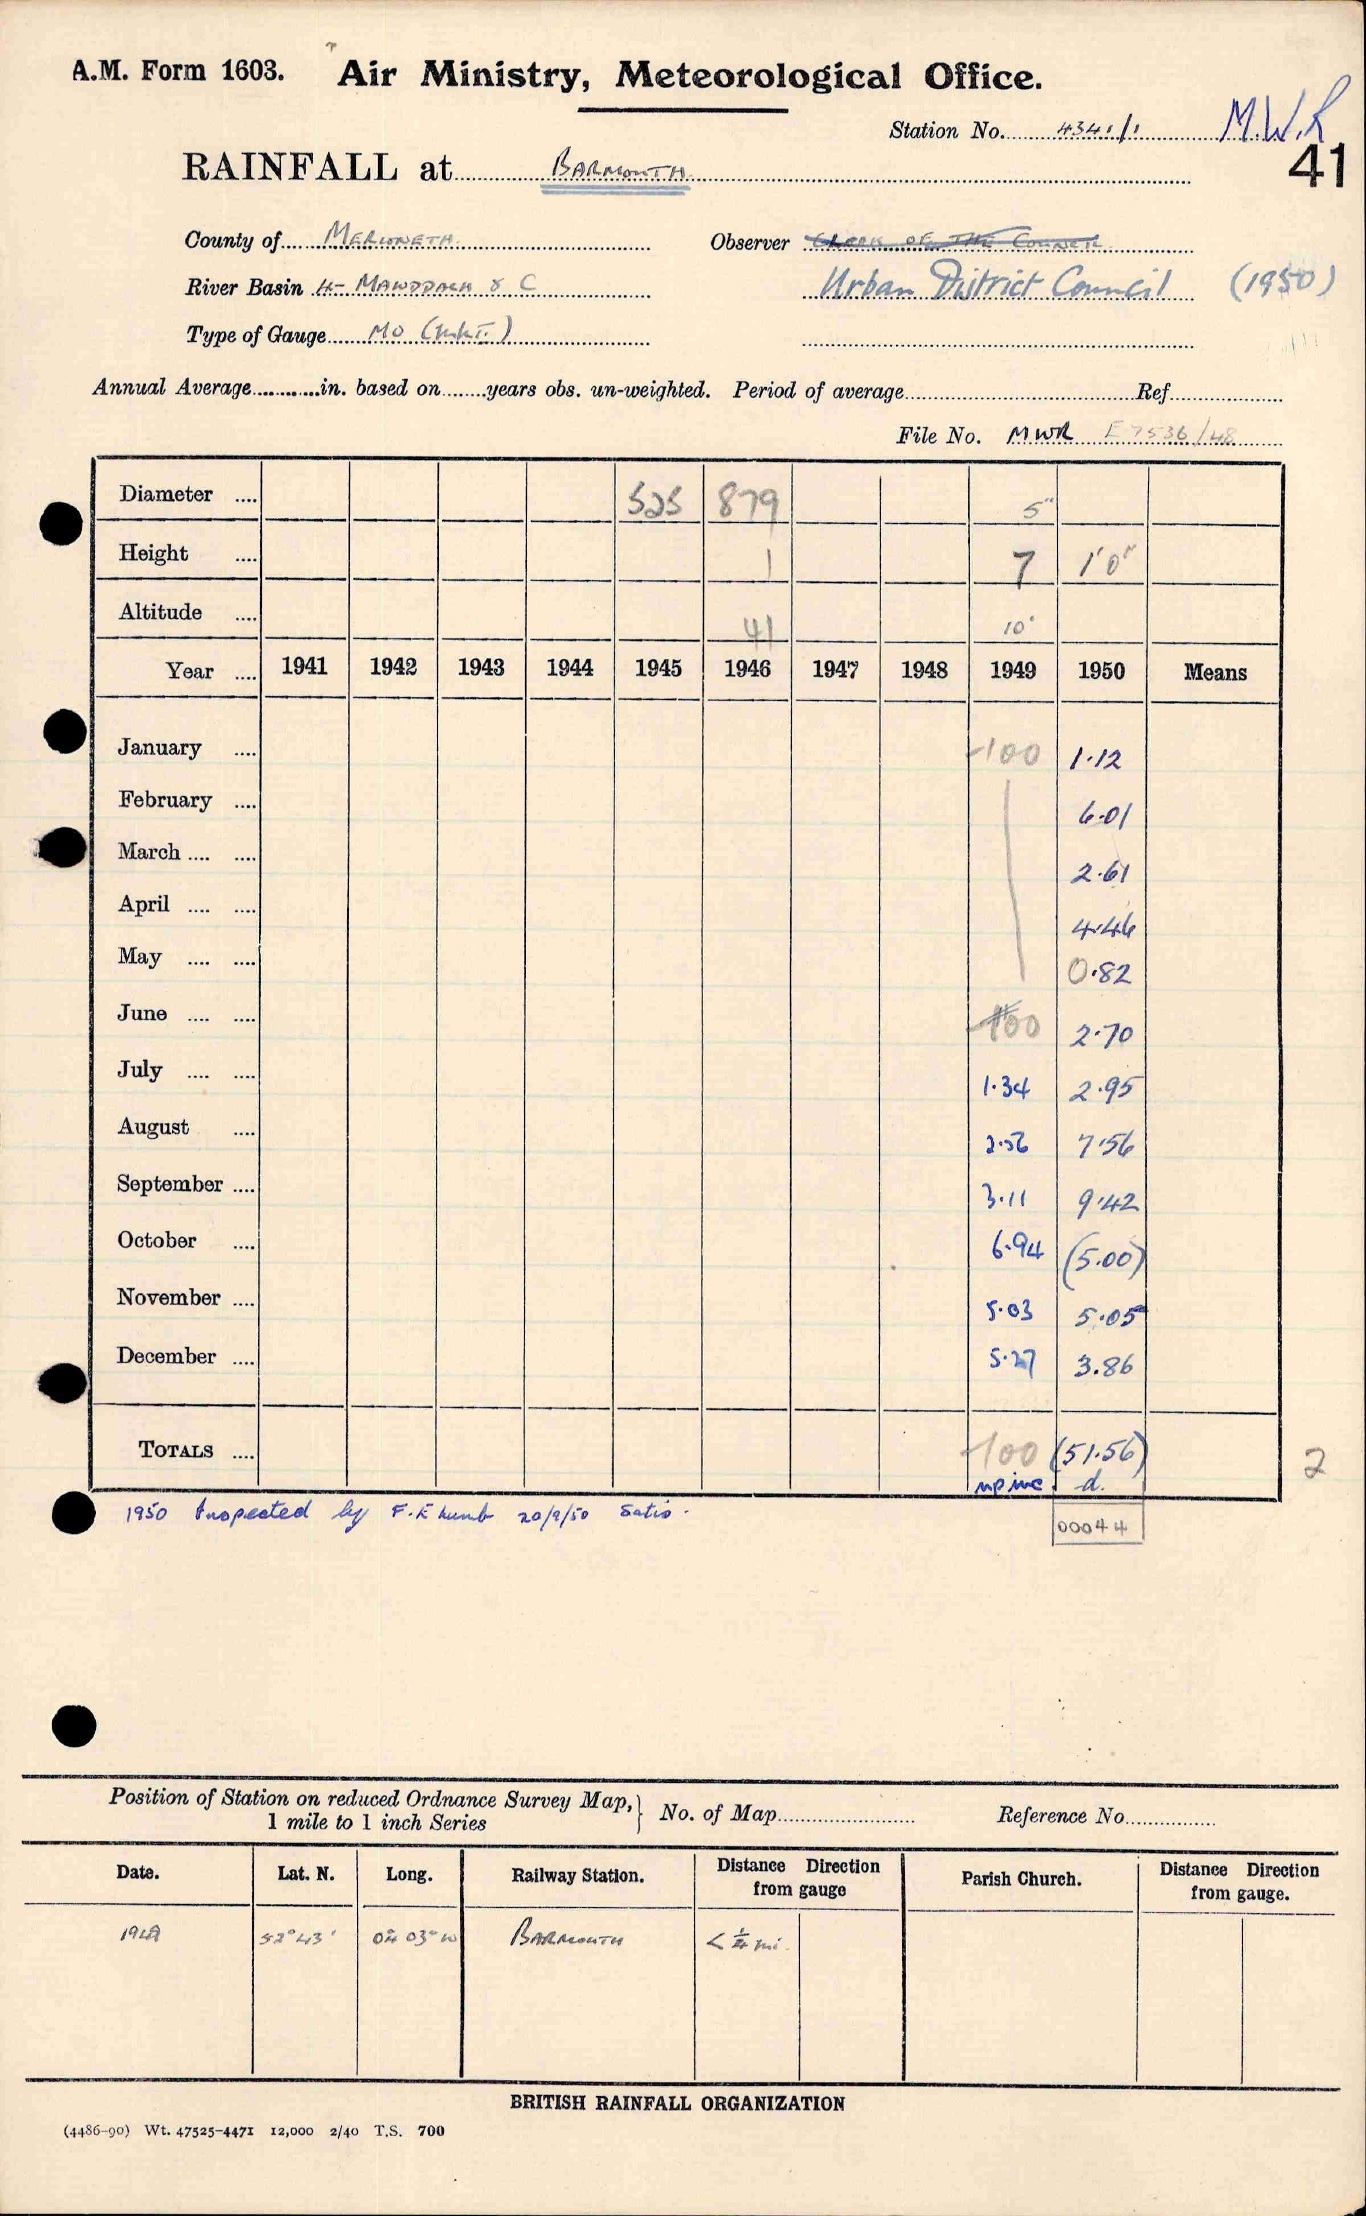 A.M. Form 1603. Air Ministry, Meteorological Office.
Station No. 4341/1 M.W.R
41
RAINFALL at BARMOUTH
County of MERIONETH Observer CLERK OF THE COUNCIL
River Basin 4- MAWDDACH & C Urban District Council (1950)
Type of Gauge MO (MkI.)
Annual Average............in. based on........years obs. un-weighted. Period of average Ref
File No. MWR E 7536/48
Diameter .... 525 879 5"
Height .... 1 7 1'0"
Altitude .... 41 10'
Year .... 1941 1942 1943 1944 1945 1946 1947 1948 1949 1950 Means
January .... -100 1.12
February .... 6.01
March .... .... 2.61
April .... .... 4.46
May .... .... 0.82
June .... .... -100 2.70
July .... .... 1.34 2.95
August .... 2.56 7.56
September .... 3.11 9.42
October .... 6.94 (5.00)
November .... 5.03 5.05
December .... 5.27 3.86
TOTALS .... -100 (51.56) 2
d.
1950 Inspected by F.E Lumb 20/9/50 Satis.
00044
Position of Station on reduced Ordnance Survey Map,
1 mile to 1 inch Series } No. of Map Reference No.
Date. Lat. N. Long. Railway Station. Distance Direction from gauge Parish Church. Distance Direction from gauge.
1949 52° 43' 04° 03' W BARMOUTH < ¼ mi.
BRITISH RAINFALL ORGANIZATION
(4486-90) Wt. 47525-4471 12,000 2/40 T.S. 700